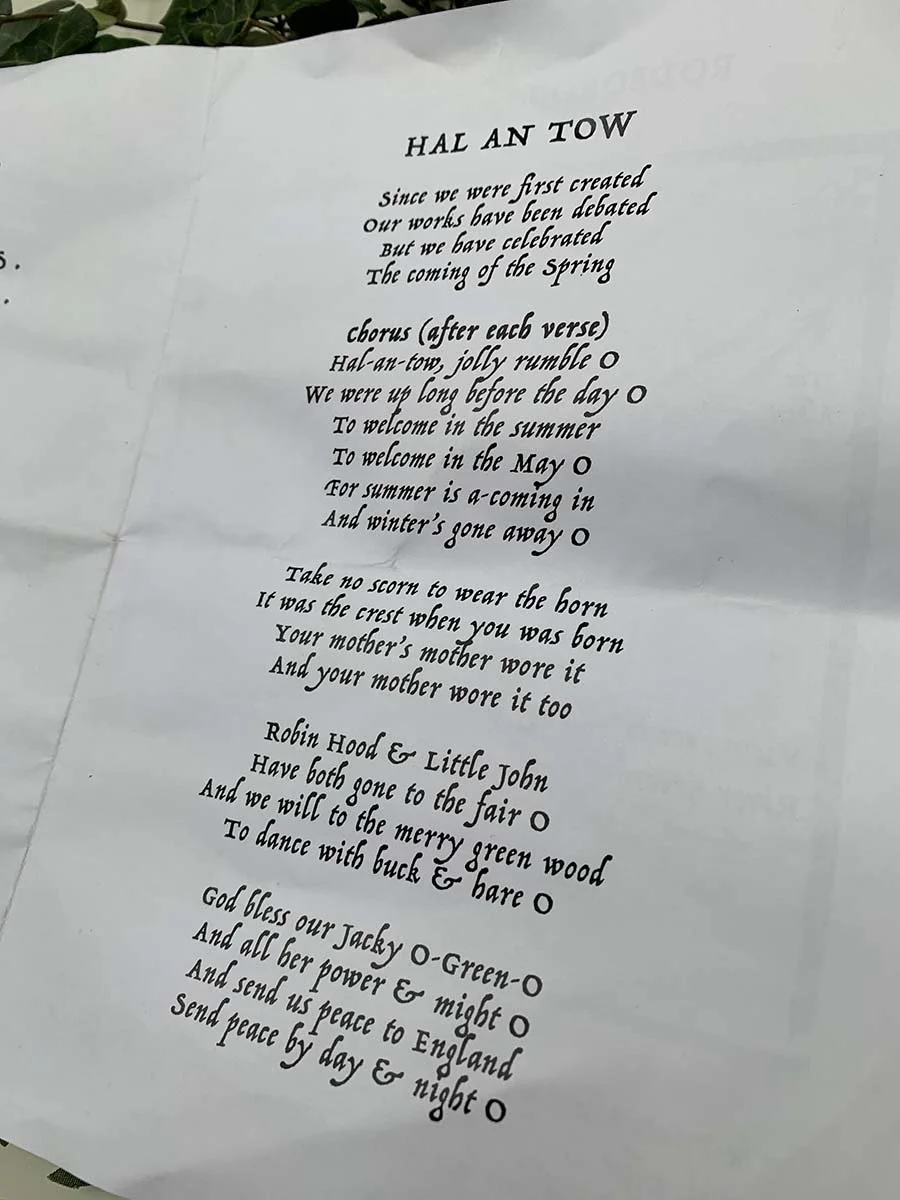 HAL AN TOW
Since we were first created
Our works have been debated
But we have celebrated
The coming of the Spring
chorus (after each verse)
Hal-an-tow, jolly rumble O
We were up long before the day O
To welcome in the summer
To welcome in the May O
For summer is a-coming in
And winter's gone away O
Take no scorn to wear the horn
It was the crest when you was born
Your mother's mother wore it
And your mother wore it too
Robin Hood & Little John
Have both gone to the fair O
And we will to the merry green wood
To dance with buck & hare O
God bless our Jacky O-Green-O
And all her power & might O
And send us peace to England
Send peace by day & night O